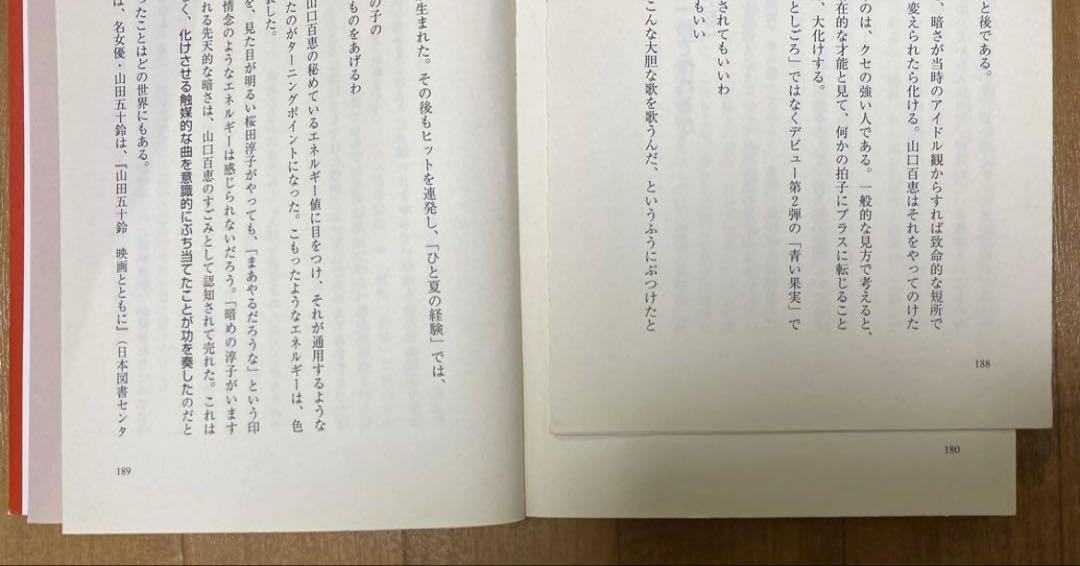 と後である。
、暗さが当時のアイドル観からすれば致命的な短所で
変えられたら化ける。山口百恵はそれをやってのけた
のは、クセの強い人である。一般的な見方で考えると、
在的な才能と見て、何かの拍子にプラスに転じること
、大化けする。
としごろ」ではなくデビュー第2弾の「青い果実」で
されてもいいわ
もいい
こんな大胆な歌を歌うんだ、というふうにぶつけたと
188
180
生まれた。その後もヒットを連発し、「ひと夏の経験」では、
の子の
ものをあげるわ
山口百恵の秘めているエネルギー値に目をつけ、それが通用するような
たのがターニングポイントになった。こもったようなエネルギーは、色
した。
を、見た目が明るい桜田淳子がやっても、「まあやるだろうな」という印
情念のようなエネルギーは感じられないだろう。「暗めの淳子がいます
れる先天的な暗さは、山口百恵のすごみとして認知されて売れた。これは
く、化けさせる触媒的な曲を意識的にぶち当てたことが功を奏したのだと
ったことはどの世界にもある。
は、名女優・山田五十鈴は、『山田五十鈴 映画とともに』(日本図書センタ
189